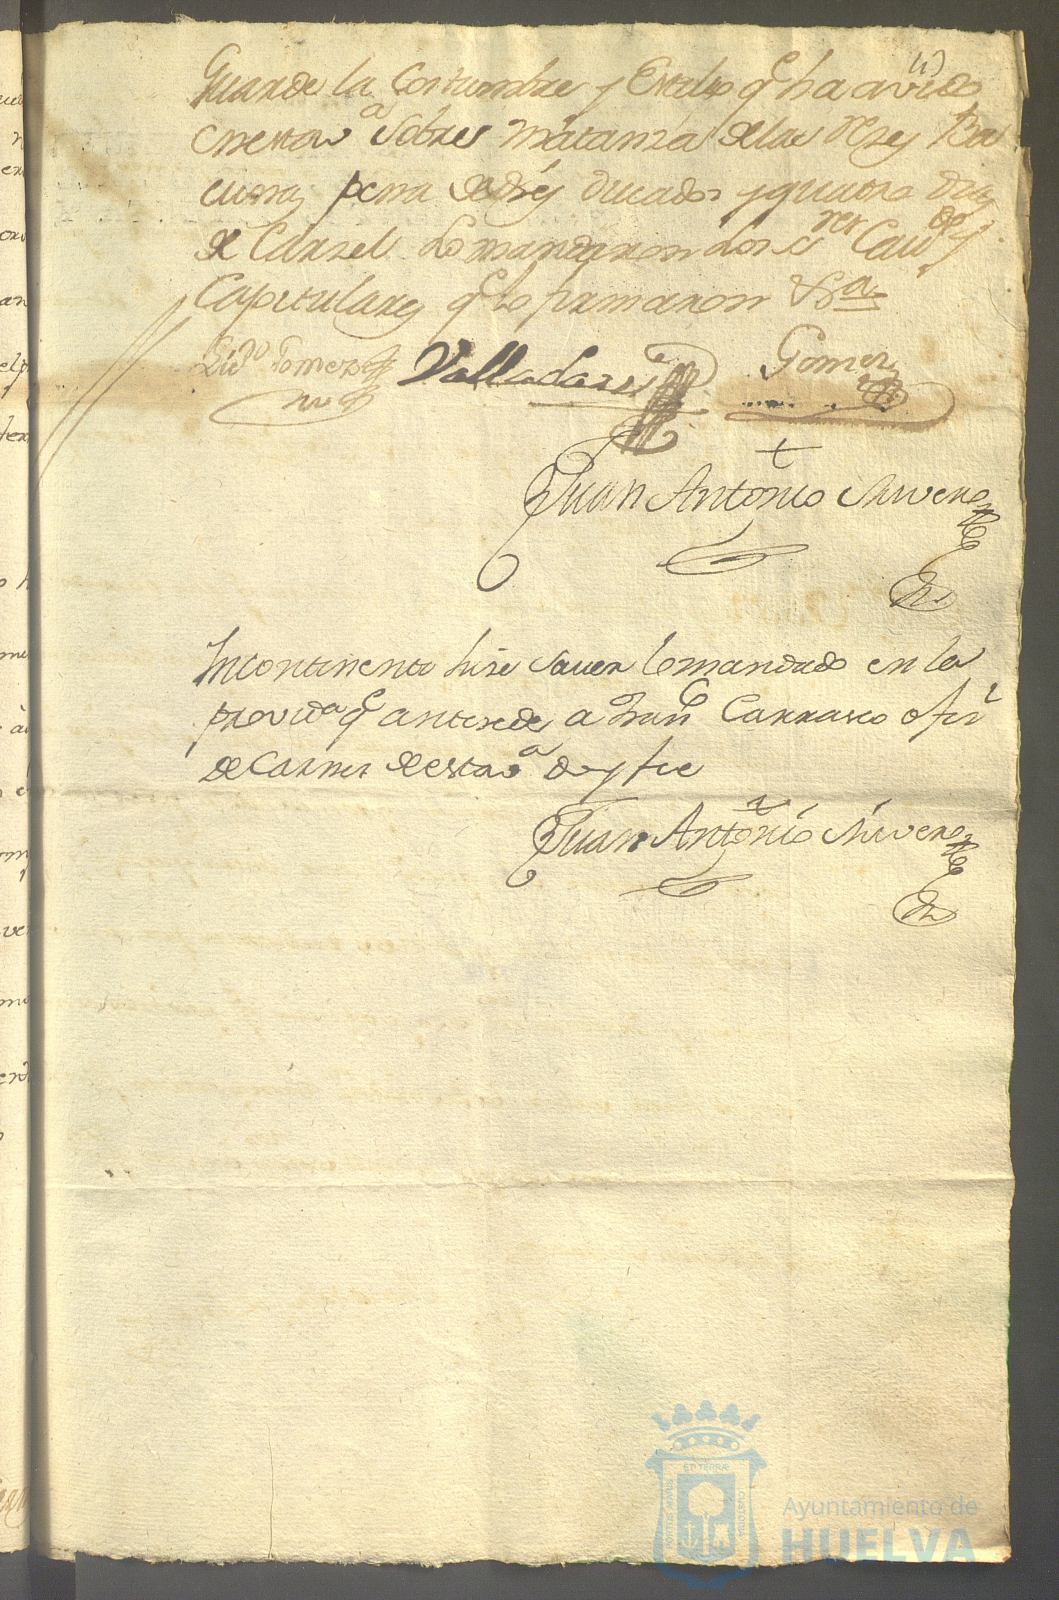 Guarde la Costumbre y Estilo q.e ha avido
en esta v.a sobre matanza de las Reses Ba
cunas pena de dies ducados y quatro dias
de Carzel Lo mandaron Los S.res Cav.dos y
Capitulares q.e lo firmaron &a
Lizdo Gomez Valladares Gomez
Juan Antonio Rivero
Incontinente hise saver lo mandado en la
provid.a q.e antesede a Fran.co Carrasco ofi.l
de Carnes de esta v.a doy fee
Juan Antonio Rivero
Ayuntamiento de
HUELVA